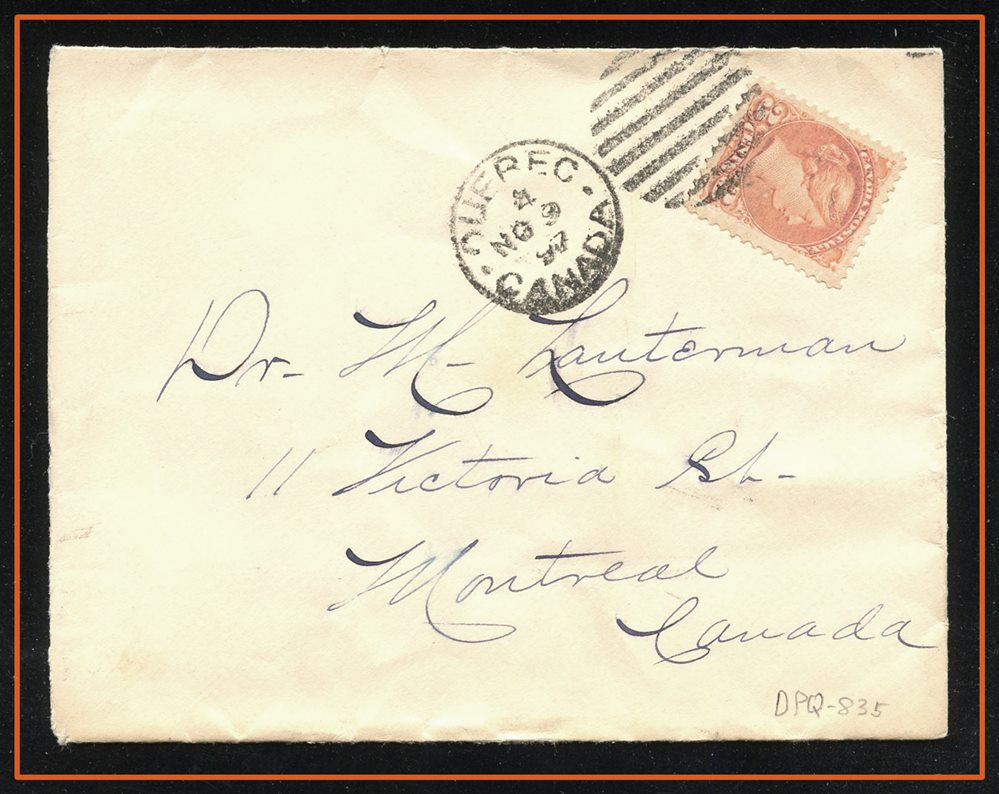 QUEBEC
4
NO 9
97
CANADA
Dr- M- Lauterman
11 Victoria St-
Montreal
Canada
DPQ-835